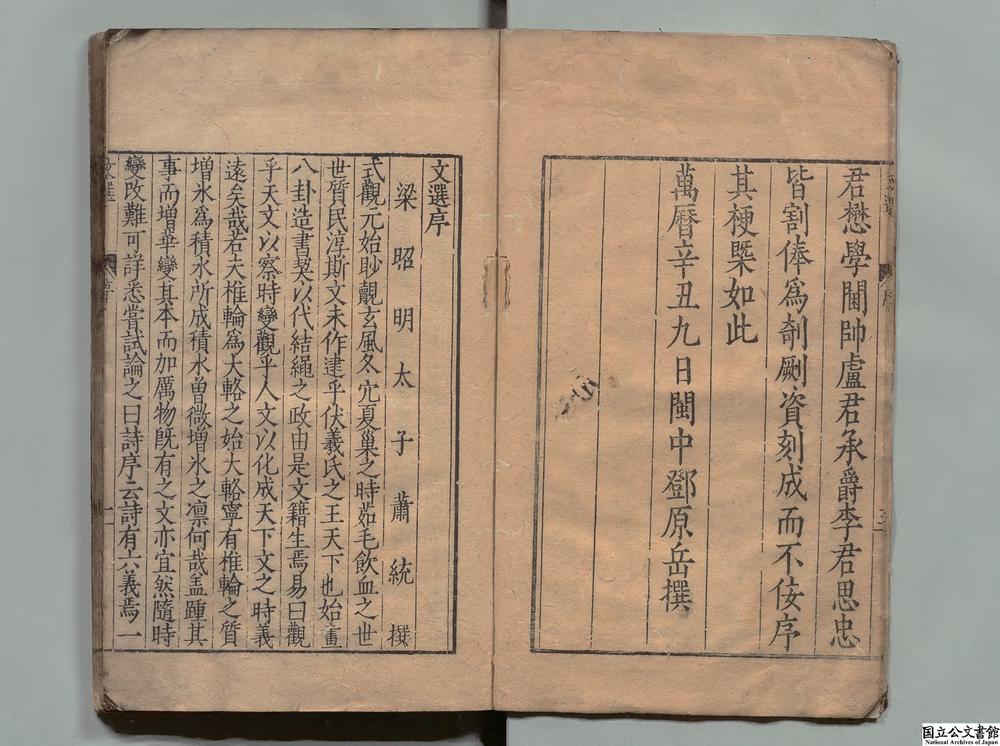 君懋學閫帥盧君承爵李君思忠
皆割俸爲剞劂資刻成而不佞序
其梗槩如此
萬曆辛丑九日閩中鄧原岳撰
文選序
梁昭明太子蕭統撰
式觀元始眇覿玄風冬穴夏巢之時茹毛飲血之世
世質民淳斯文未作逮乎伏羲氏之王天下也始畫
八卦造書契以代結繩之政由是文籍生焉易曰觀
乎天文以察時變觀乎人文以化成天下文之時義
遠矣哉若夫椎輪爲大輅之始大輅寧有椎輪之質
増氷爲積水所成積水曽微増氷之凛何哉盖踵其
事而增華變其本而加厲物旣有之文亦宜然隨時
變改難可詳悉嘗試論之曰詩序云詩有六義焉一
国立公文書館
National Archives of Japan